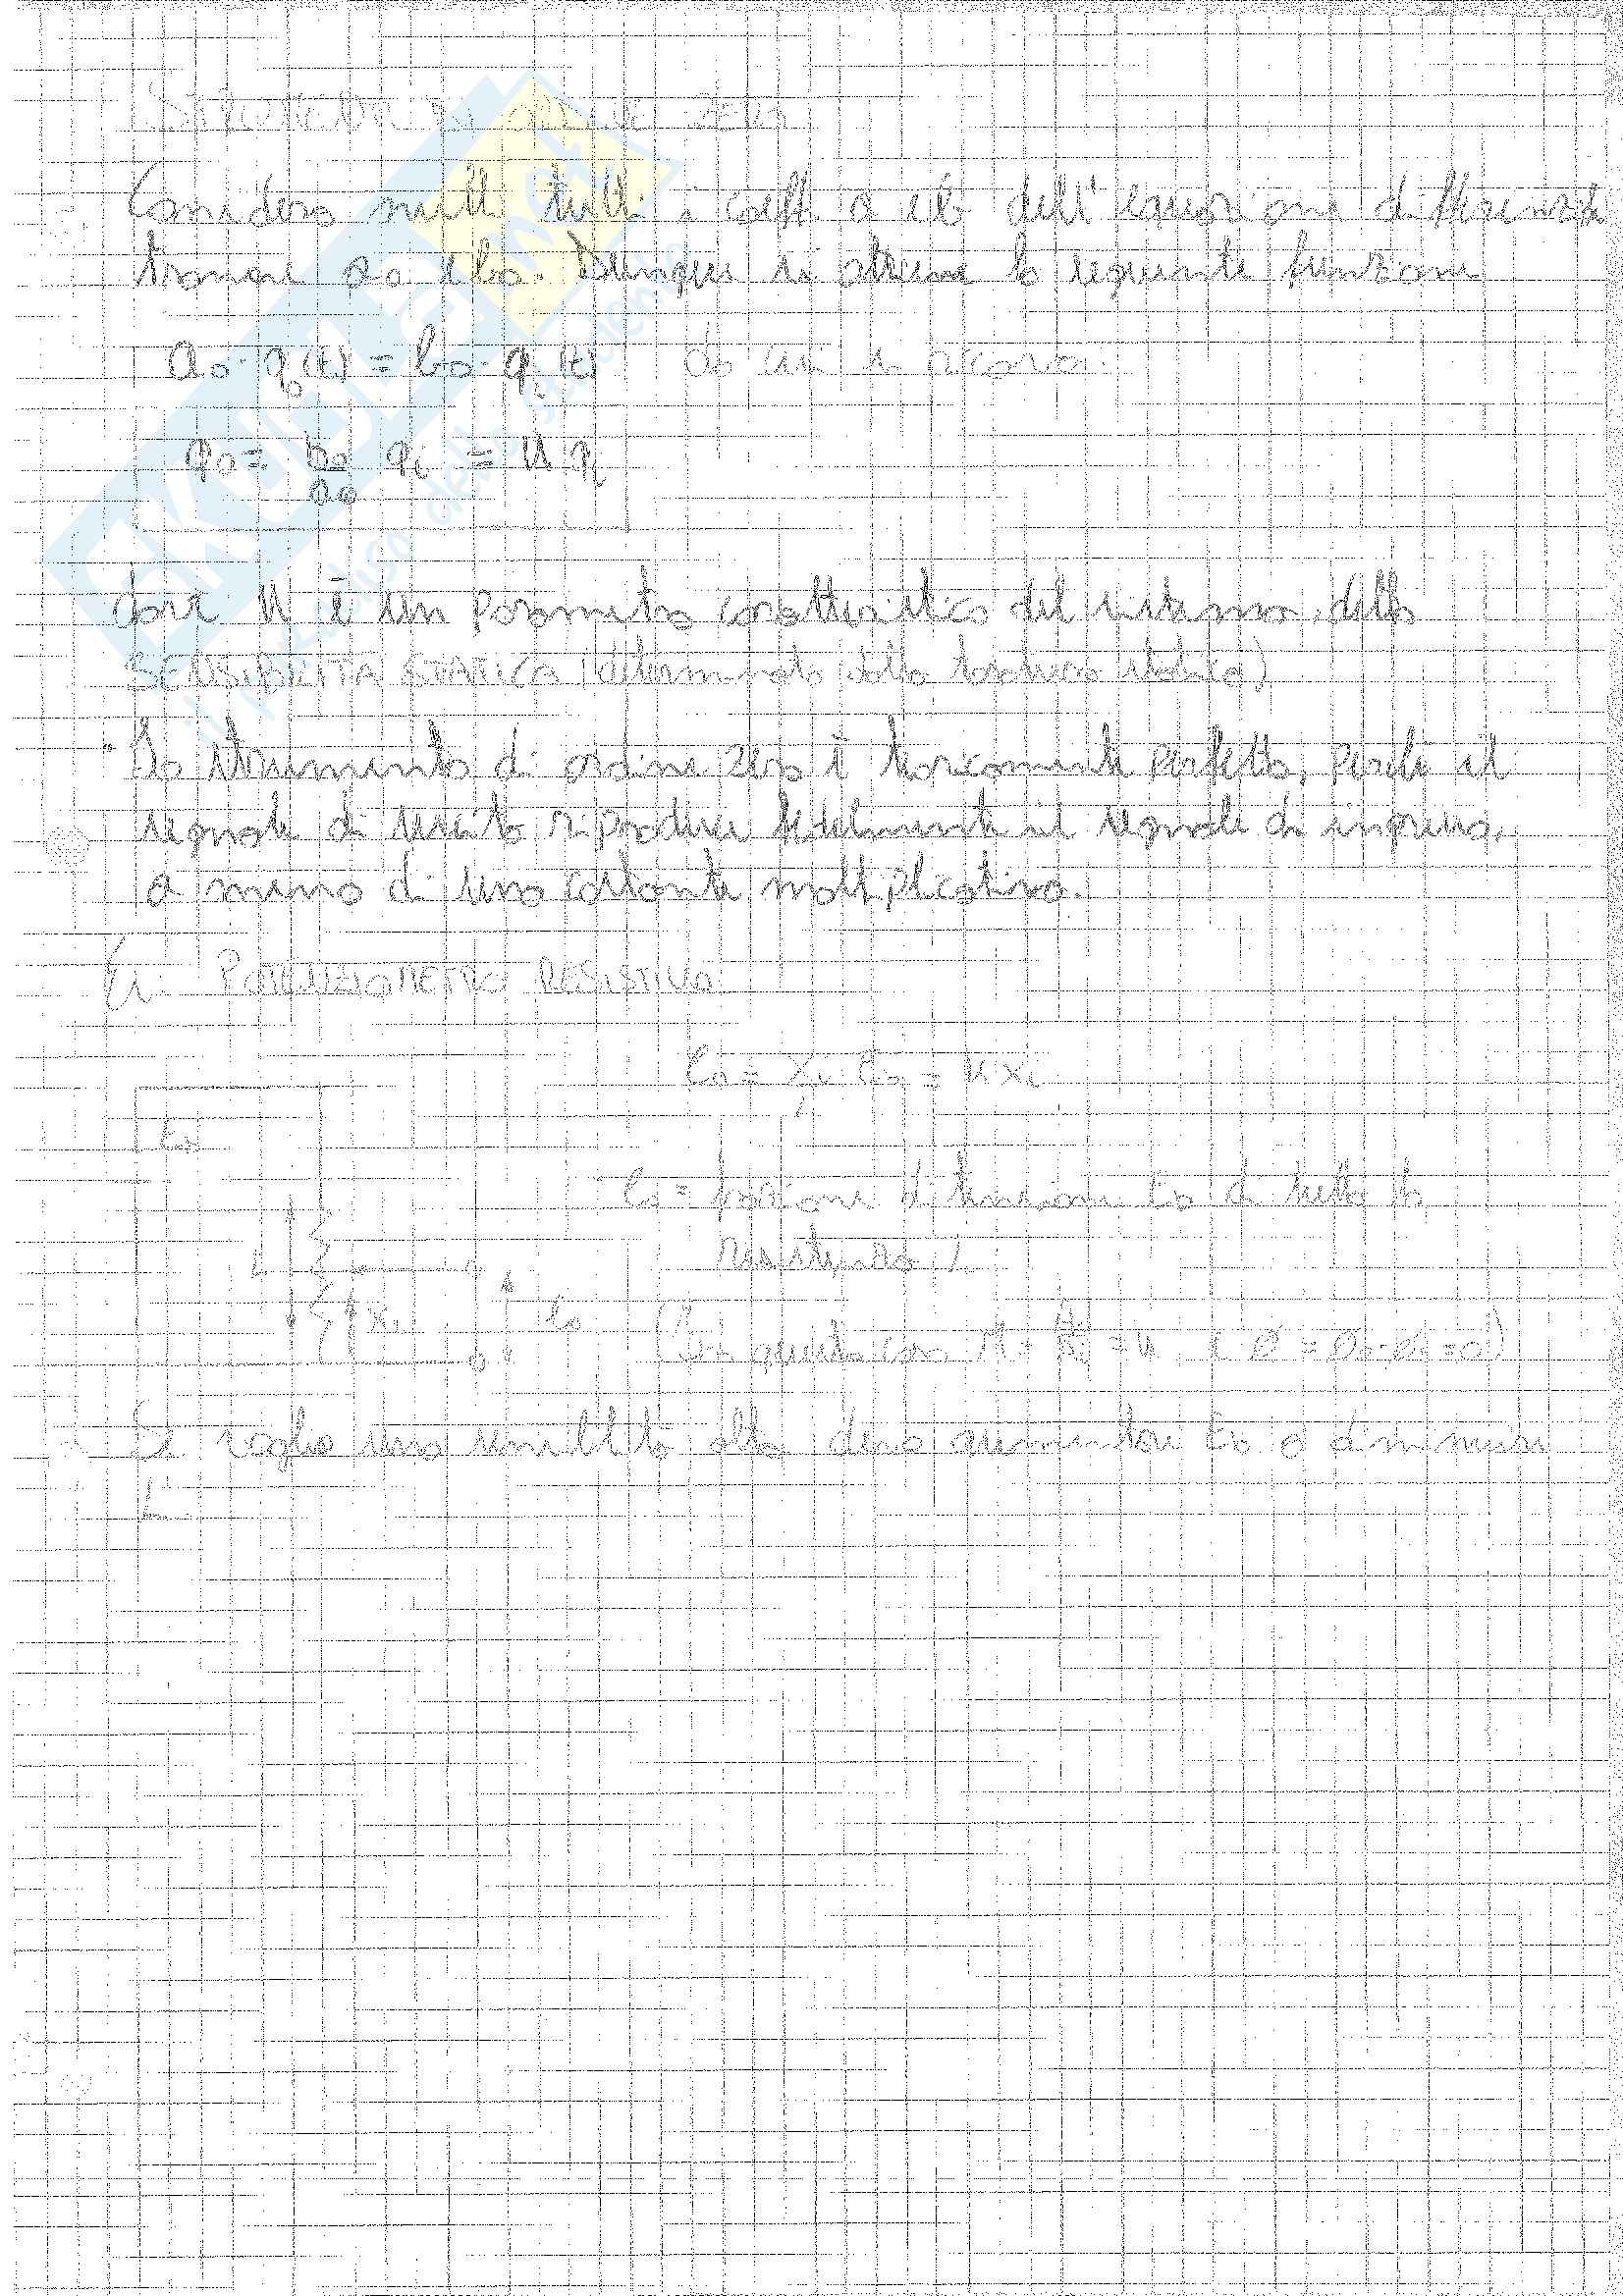 STRUMENTI DI ordine ZERO
Considero nulli tutti i coeff a e b dell'equazione differenziale
tranne a0 e b0. Dunque si ottiene la seguente funzione
a0 · q0(t) = b0 · qi(t) da cui si ricava:
q0 = b0/a0 qi = K qi
dove K è un parametro caratteristico del sistema, detto
SENSIBILITÀ STATICA (determinata dalla taratura statica)
Lo strumento di ordine zero è teoricamente perfetto, perché il
segnale di uscita riproduce fedelmente il segnale di ingresso,
a meno di una costante moltiplicativa.
Es. POTENZIOMETRO RESISTIVO
e0 = xi/L · Eb = K xi
Eb
e0 = frazione di tensione Eb di tutta la
resistenza L
L xi e0 (In questo caso M = = K e Ø = Ø0 - Øi = 0)
Se voglio una sensibilità alta devo aumentare Eb o diminuire
L